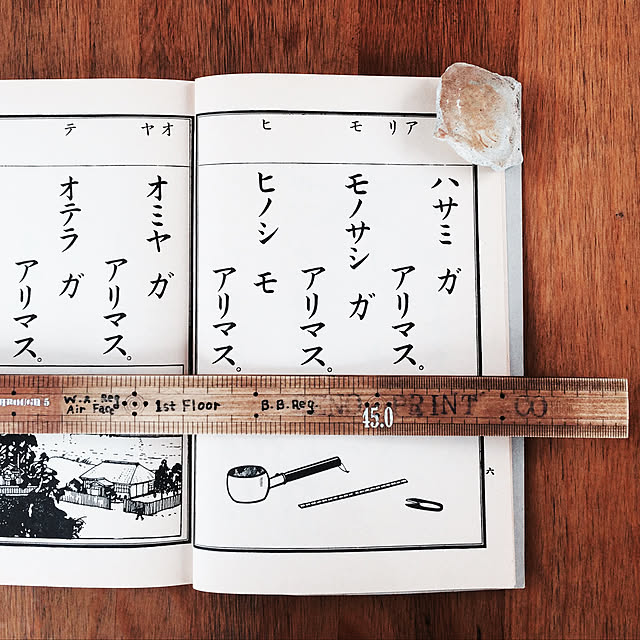 アリ
モ
ヒ
ハサミ ガ
アリマス。
モノサシ ガ
アリマス。
ヒノシ モ
アリマス。
六
オヤ
テ
オミヤ ガ
アリマス。
オテラ ガ
アリマス。
W.A. Reg
Air Face
1st Floor
B.B.Reg
45.0
PRINT CO